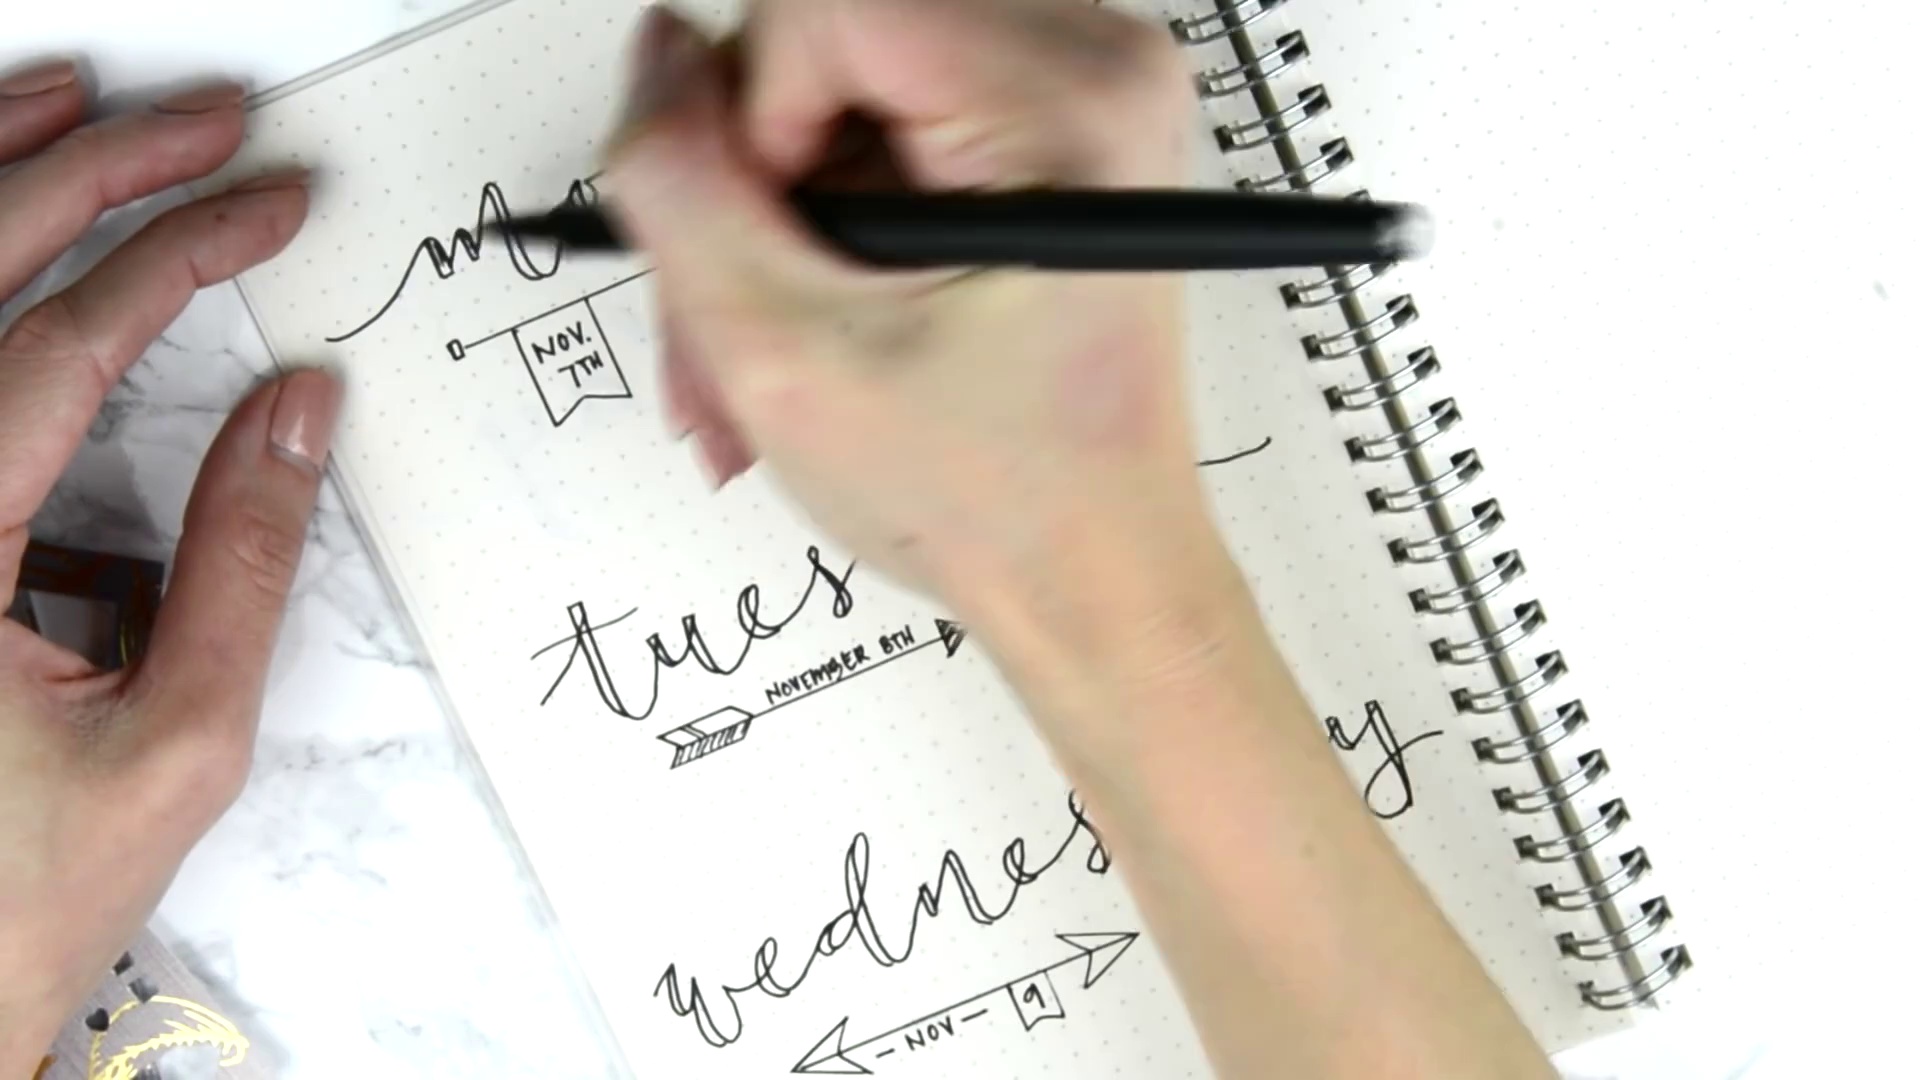 Mo
NOV.
7TH
tues
NOVEMBER 8TH
ay
wednes
- NOV - 9